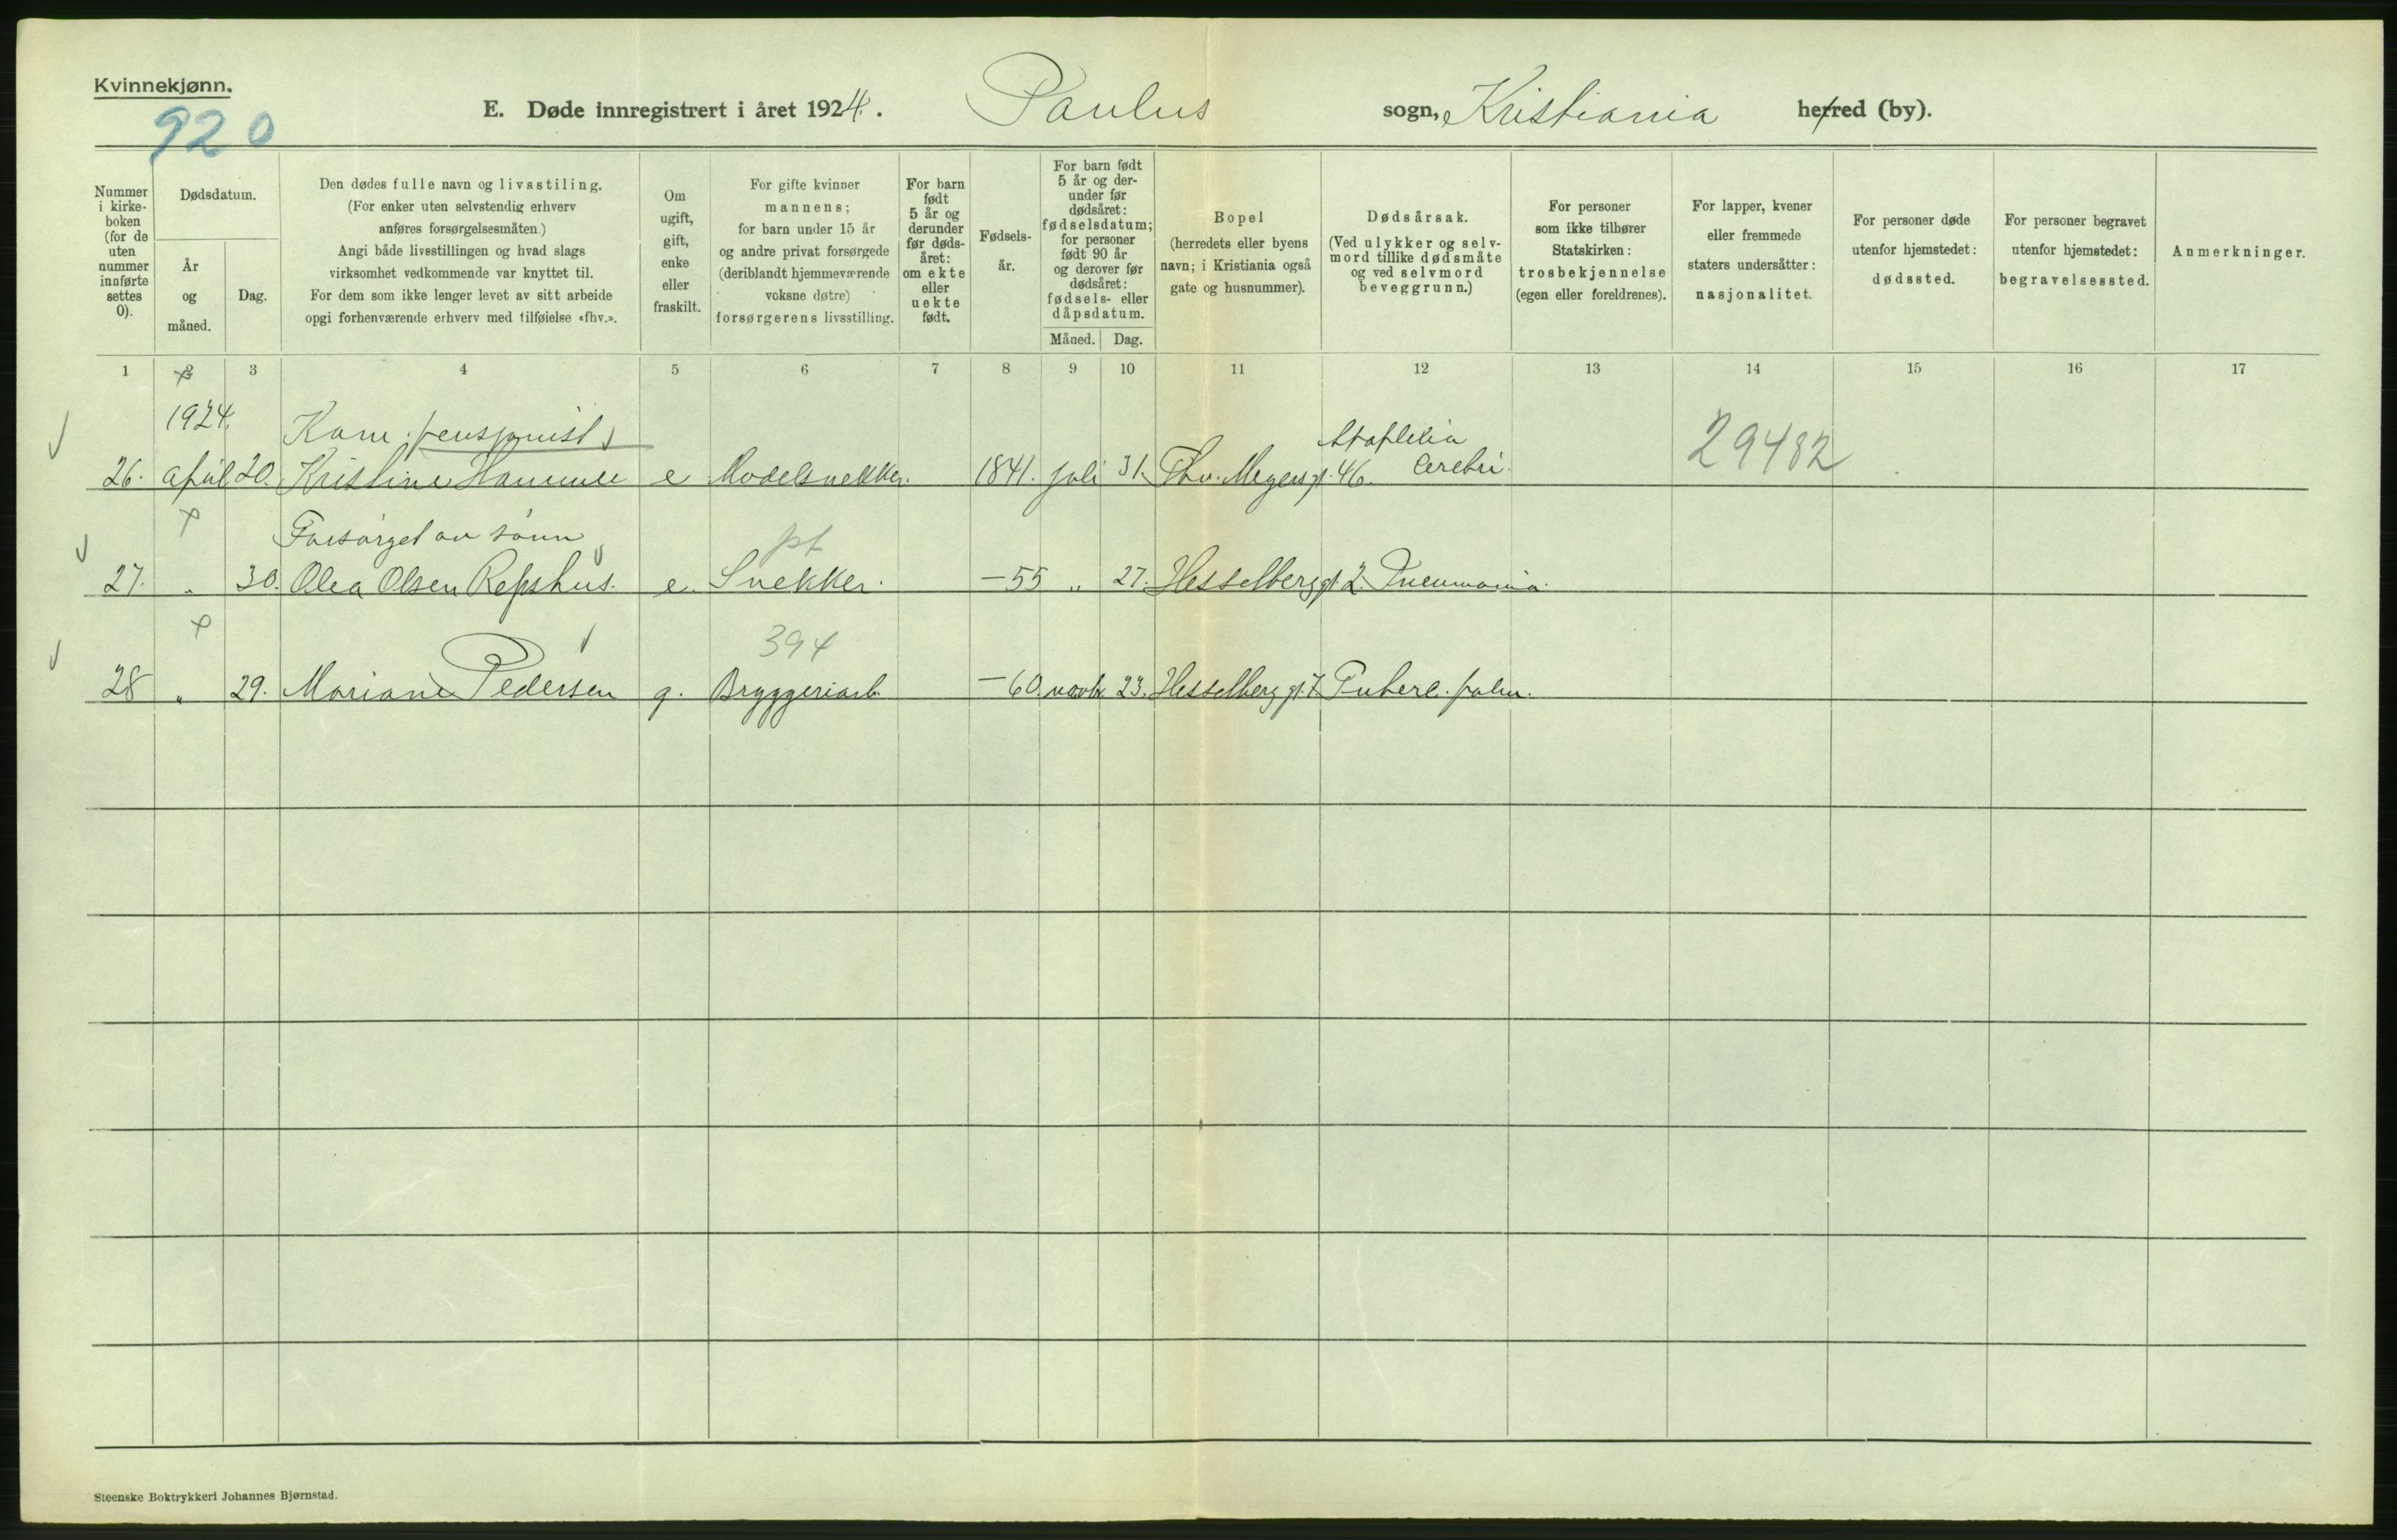 Kvinnekjønn.
920
E. Døde innregistrert i året 1924. Paulus sogn, Kristiania herred (by).
Nummer i kirke-boken (for de uten nummer innførte settes 0).
Dødsdatum.
År og måned.
Dag.
Den dødes fulle navn og livsstiling.
(For enker uten selvstendig erhverv
anføres forsørgelsesmåten.)
Angi både livsstillingen og hvad slags
virksomhet vedkommende var knyttet til.
For dem som ikke lenger levet av sitt arbeide
opgi forhenværende erhverv med tilføielse «fhv.».
Om ugift, gift, enke eller fraskilt.
For gifte kvinner
mannens;
for barn under 15 år
og andre privat forsørgede
(deriblandt hjemmeværende
voksne døtre)
forsørgerens livsstilling.
For barn født 5 år og derunder før døds-året: om ekte eller uekte født.
Fødsels-år.
For barn født
5 år og der-
under før
dødsåret:
fødselsdatum;
for personer
født 90 år
og derover før
dødsåret:
fødsels- eller
dåpsdatum.
Måned. Dag.
Bopel
(herredets eller byens
navn; i Kristiania også
gate og husnummer).
Dødsårsak.
(Ved ulykker og selv-
mord tillike dødsmåte
og ved selvmord
beveggrunn.)
For personer
som ikke tilhører
Statskirken:
trosbekjennelse
(egen eller foreldrenes).
For lapper, kvener
eller fremmede
staters undersåtter:
nasjonalitet.
For personer døde
utenfor hjemstedet:
dødssted.
For personer begravet
utenfor hjemstedet:
begravelsessted.
Anmerkninger.
1 2 3 4 5 6 7 8 9 10 11 12 13 14 15 16 17
1924. Kom. pensjonist Apoplexia 29482
26. april 20. Kristine Hammer e Modelsnekker. 1841. juli 31. Thv. Meyers gt. 46. Cerebri.
Forsørget av sønn pt
27. " 30. Olea Olsen Repshus. e. Snekker. -55 " 27. Hesselberg gt. 2. Pneumonia.
394
28 " 29. Mariane Pedersen g. Bryggeriarb. -60. novbr 23. Hesselberg gt. 7 Tuberc. pulm.
Steenske Boktrykkeri Johannes Bjørnstad.